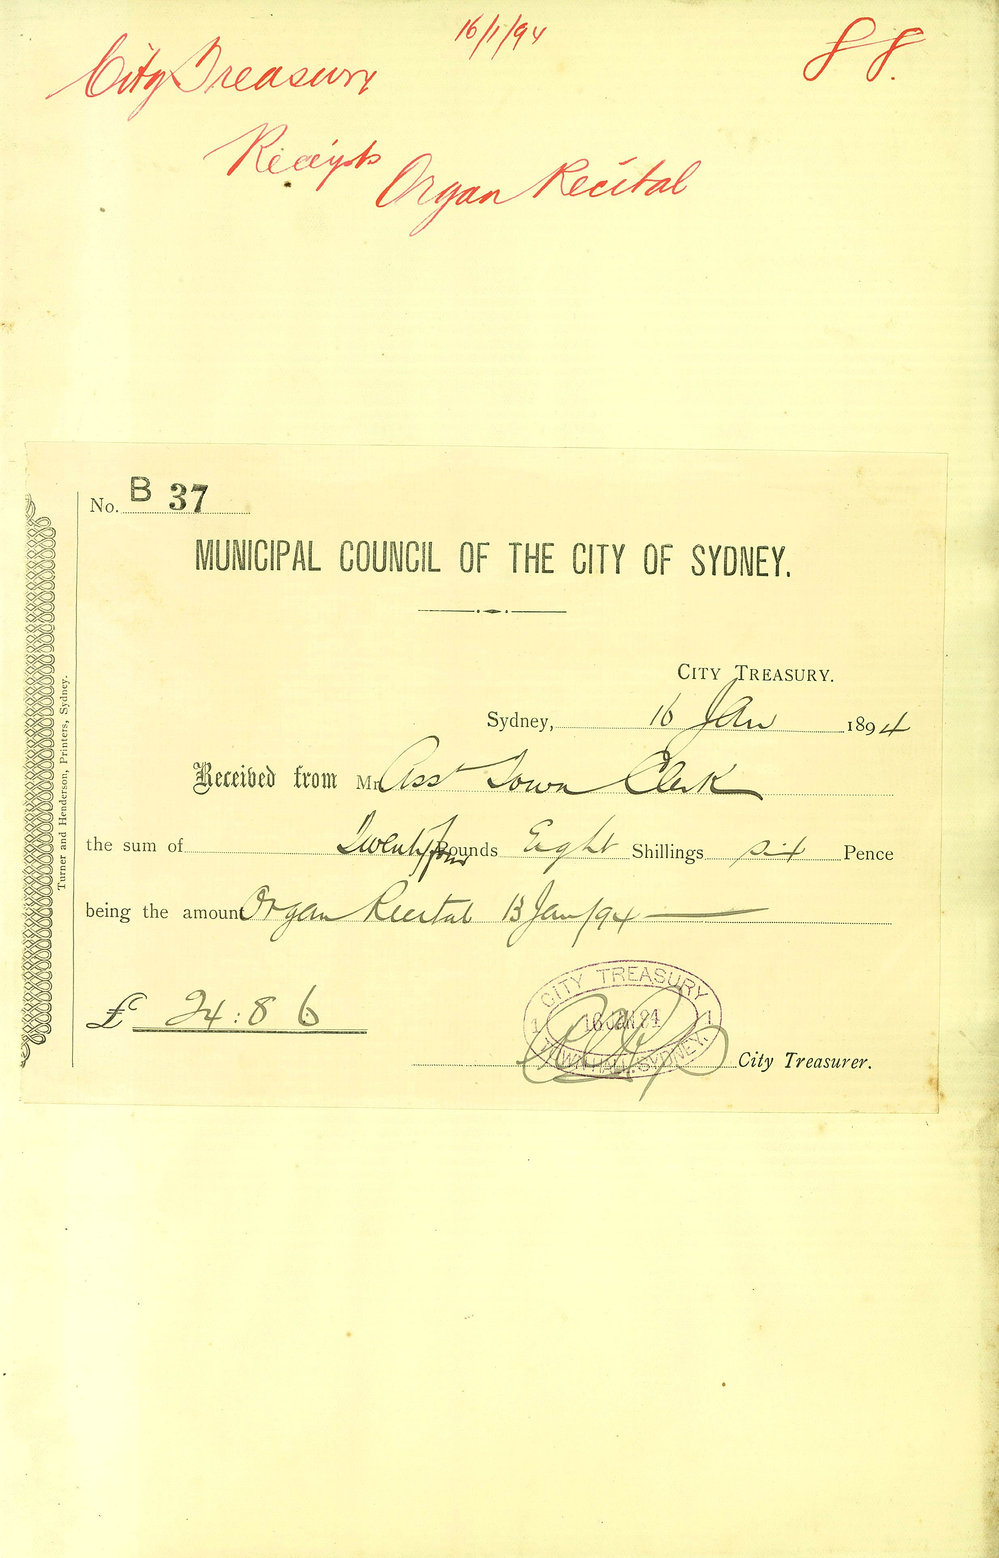 16/1/94
88.
City Treasury
Receipts
Organ Recital
No. B 37
MUNICIPAL COUNCIL OF THE CITY OF SYDNEY.
CITY TREASURY.
Sydney, 16 Jan 1894
Received from Mr Asst Town Clerk
the sum of Twenty four Pounds Eight Shillings six Pence
being the amount Organ Recital 13 Jan/94
£ 24 : 8 6
CITY TREASURY
1 16 JAN 94 1
TOWN HALL, SYDNEY.
City Treasurer.
Turner and Henderson, Printers, Sydney.